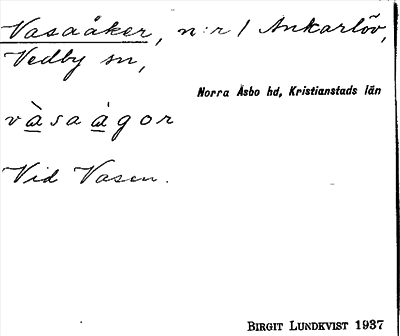 Vasaåker, n:r 1 Ankarlöv,
Vedby sn,
Norra Åsbo hd, Kristianstads län
và̱sa å̱gor
Vid Vasen.
BIRGIT LUNDKVIST 1937